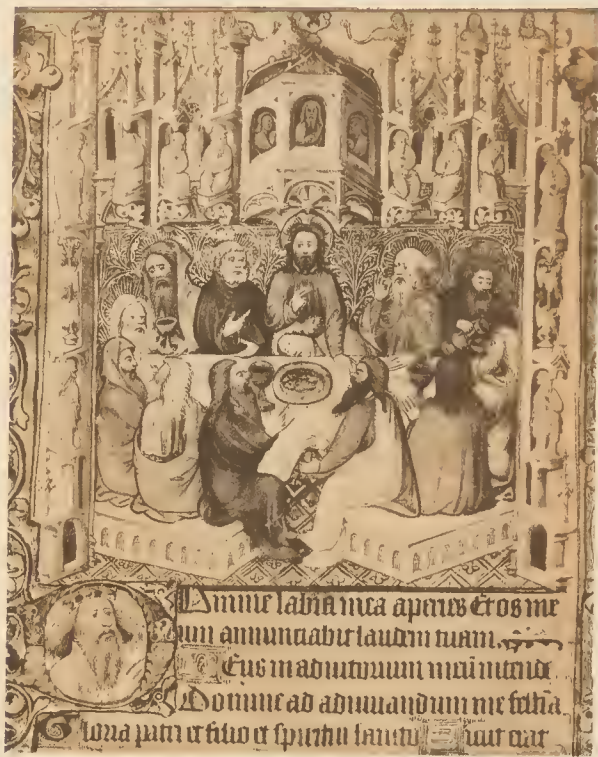 Domine labia mea aperies Et os me
um annunciabit laudem tuam.
Deus in adiutorium meũ intende
Domine ad adiuuandum me festina
Gloria patri et filio et spiritui sancto Sicut erat